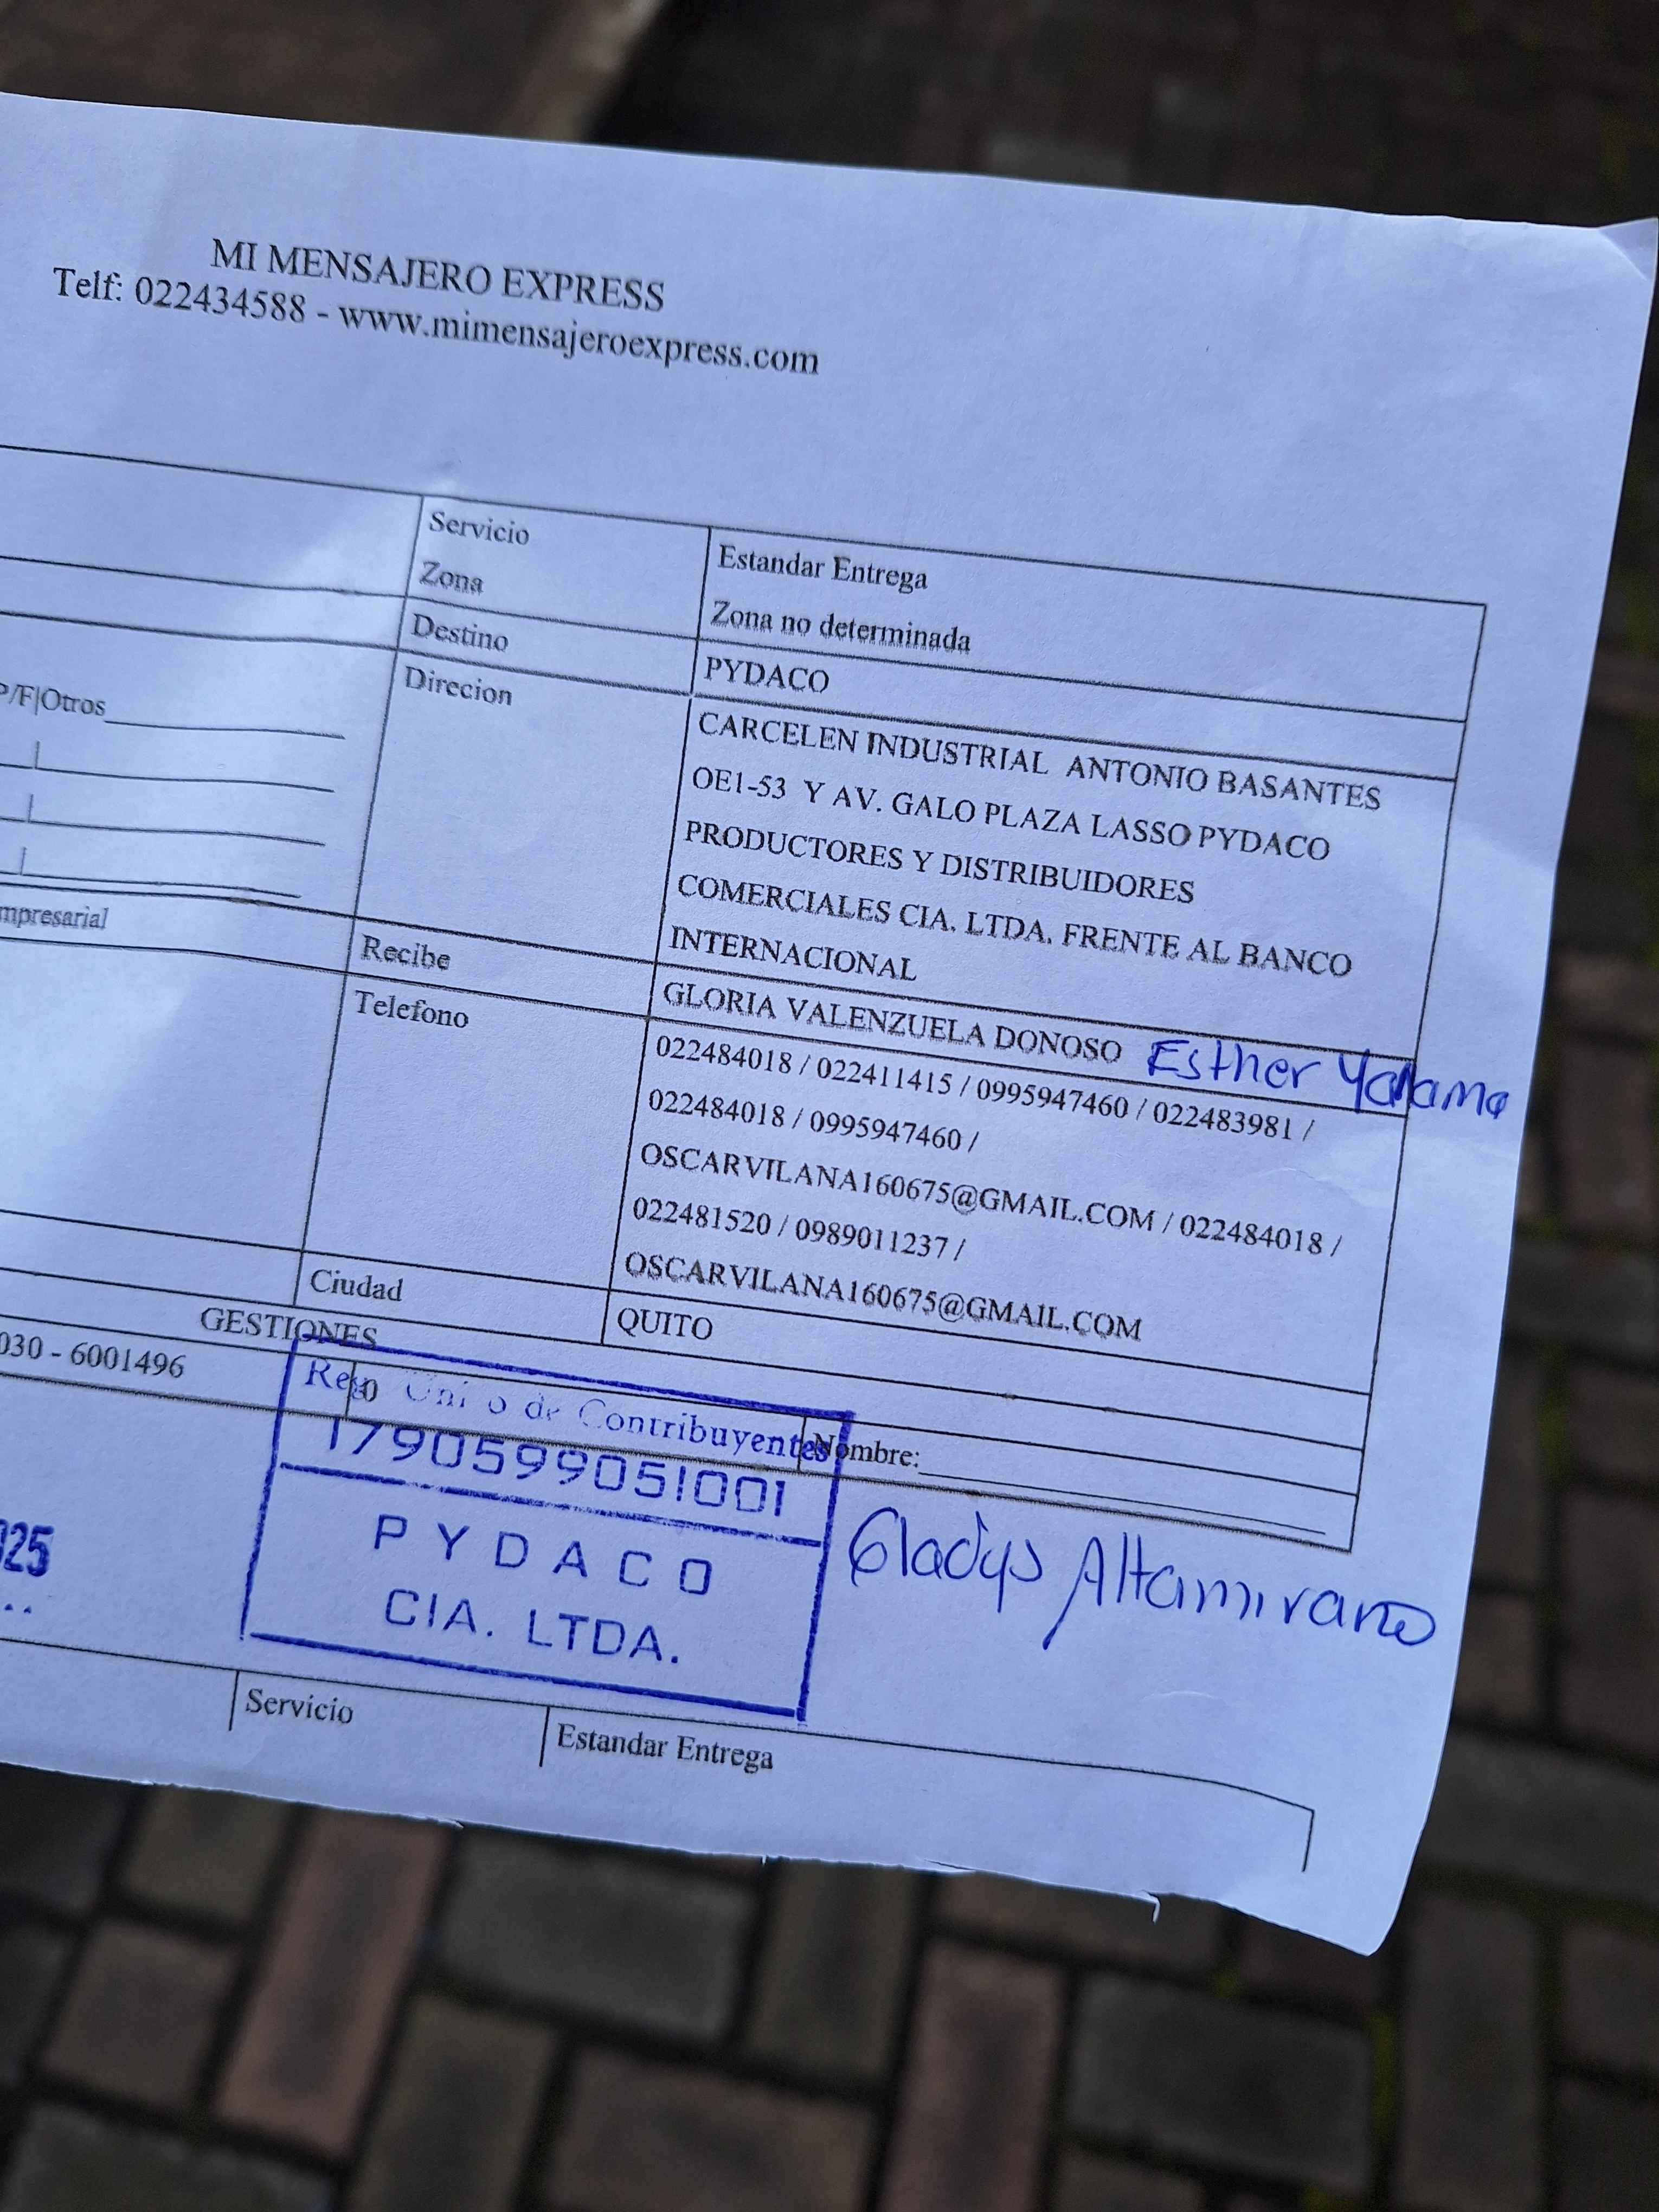 MI MENSAJERO EXPRESS
Telf: 022434588 - www.mimensajeroexpress.com
Servicio
Estandar Entrega
Zona
Zona no determinada
Destino
PYDACO
Direcion
CARCELEN INDUSTRIAL ANTONIO BASANTES
OE1-53 Y AV. GALO PLAZA LASSO PYDACO
PRODUCTORES Y DISTRIBUIDORES
COMERCIALES CIA. LTDA. FRENTE AL BANCO
INTERNACIONAL
P/F|Otros
mpresarial
Recibe
GLORIA VALENZUELA DONOSO Esther
Telefono
022484018 / 022411415 / 0995947460 / 022483981 /
022484018 / 0995947460 /
OSCARVILANA160675@GMAIL.COM / 022484018 /
022481520 / 0989011237 /
OSCARVILANA160675@GMAIL.COM
Ciudad
QUITO
GESTIONES
030 - 6001496
0
Nombre:
Reg. Unico de Contribuyentes
1790599051001
PYDACO
CIA. LTDA.
Gladys Altamirano
025
Servicio
Estandar Entrega